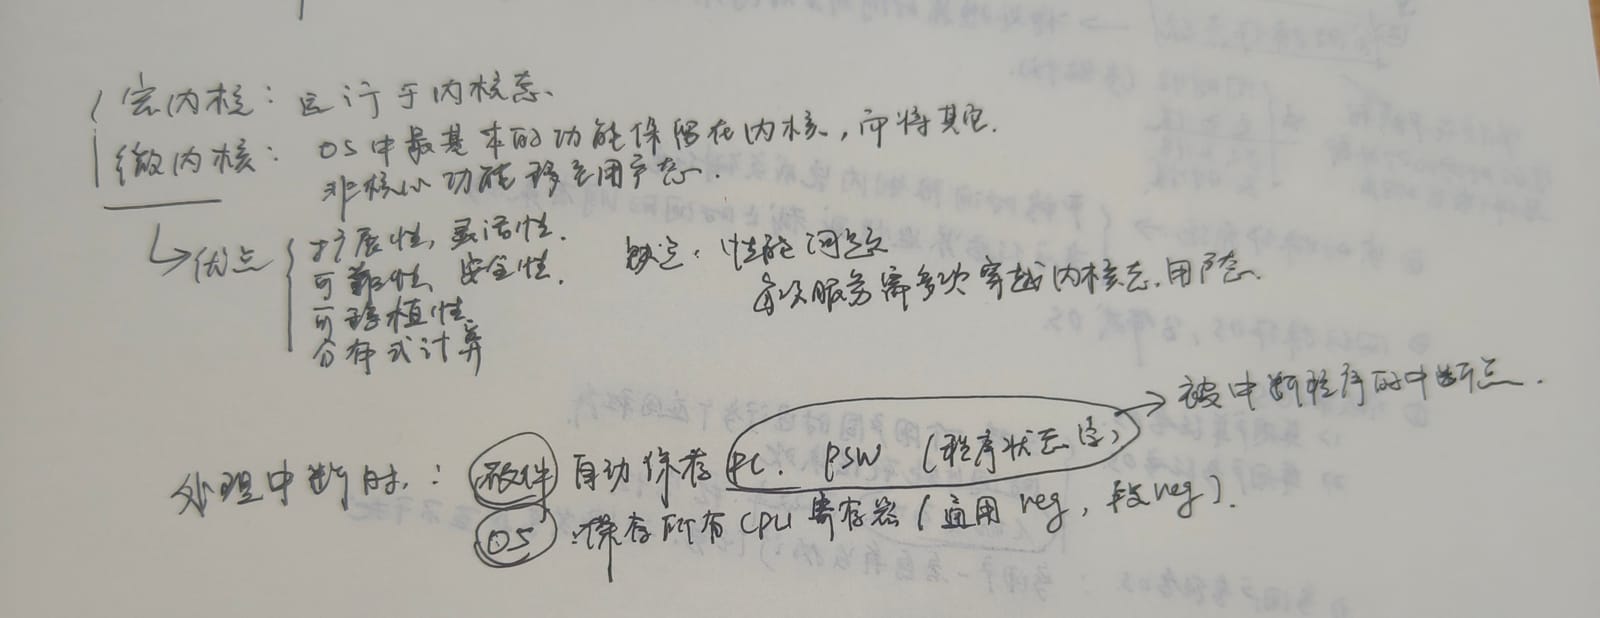 宏内核：运行于内核态.
微内核：OS中最基本的功能保留在内核，而将其它
非核心功能移至用户态.
优点 扩展性，灵活性.
可靠性、安全性.
可移植性.
分布式计算
缺点：性能问题
每次服务需多次穿越内核态.用户态.
→被中断程序的中断点.
处理中断时：硬件 自动保存 PC. PSW（程序状态字）
OS 保存所有CPU寄存器（通用reg，段reg）.